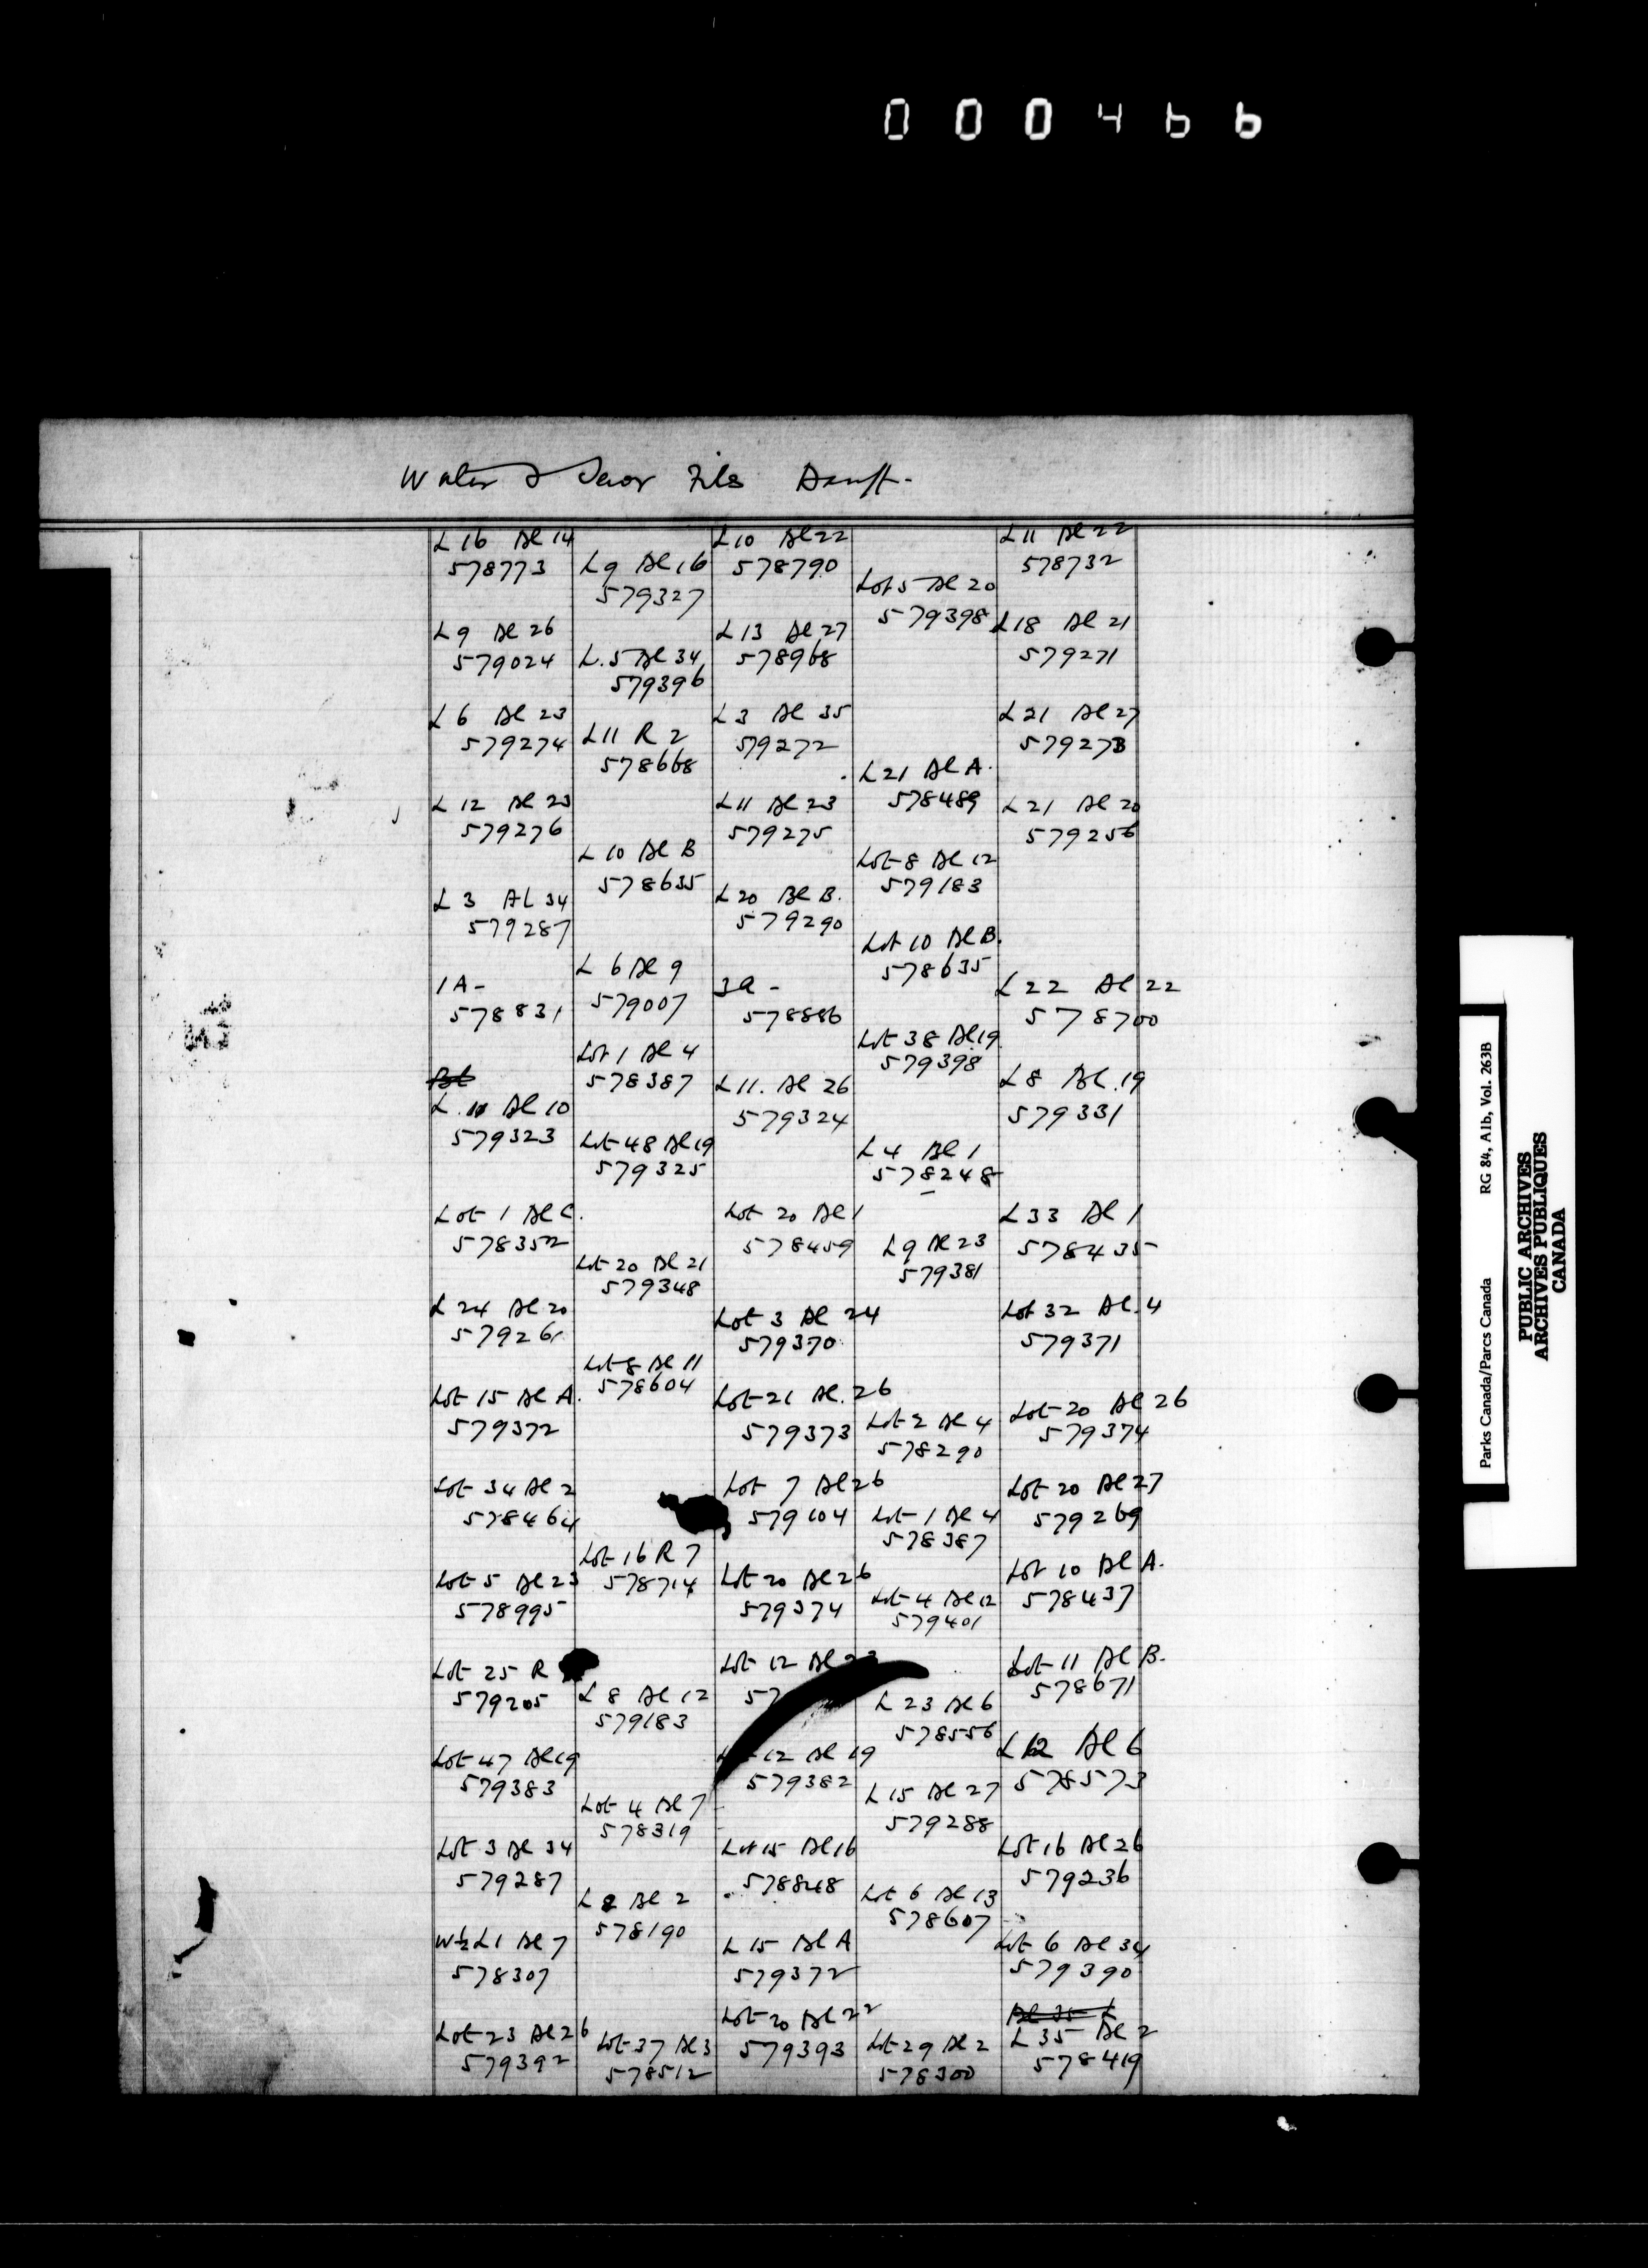 000466
Water & Sewer Files Banff.
L 16 Bl 14
578773
L 9 Bl 26
579024
L 6 Bl 23
579274
L 12 Bl 23
579276
L 3 Bl 34
579287
1A-
578831
Bl
L. 11 Bl 10
579323
Lot 1 Bl C.
578352
L 24 Bl 20
579261
Lot 15 Bl A.
579372
Lot 34 Bl 2
578464
Lot 5 Bl 23
578995
Lot 25 R
579205
Lot 47 Bl 19
579383
Lot 3 Bl 34
579287
W½ L1 Bl 7
578307
Lot 23 Bl 26
579392
L 9 Bl 16
579327
L. 5 Bl 34
579396
L 11 R 2
578668
L 10 Bl B
578635
L 6 Bl 9
579007
Lot 1 Bl 4
578387
Lot 48 Bl 19
579325
Lot 20 Bl 21
579348
Lot 8 Bl 11
578604
Lot 16 R 7
578714
L 8 Bl 12
579183
Lot 4 Bl 7
578319
L 2 Bl 2
578190
Lot 37 Bl 3
578512
L 10 Bl 22
578790
L 13 Bl 27
578968
L 3 Bl 35
579272
L 11 Bl 23
579275
L 20 Bl B.
579290
3a -
578886
L 11. Bl 26
579324
Lot 20 Bl 1
578459
Lot 3 Bl 24
579370
Lot 21 Bl. 26
579373
Lot 7 Bl 26
579104
Lot 20 Bl 26
579374
Lot 12 Bl
57
12 Bl 19
579382
Lot 15 Bl 16
578848
L 15 Bl A
579372
Lot 20 Bl 22
579393
Lot 5 Bl 20
579398
L 21 Bl A.
578489
Lot 8 Bl 12
579183
Lot 10 Bl B.
578635
Lot 38 Bl 19
579398
L 4 Bl 1
578248
L 9 Bl 23
579381
Lot 2 Bl 4
578290
Lot 1 Bl 4
578387
Lot 4 Bl 12
579401
L 23 Bl 6
578556
L 15 Bl 27
579288
Lot 6 Bl 13
578607
Lot 29 Bl 2
578300
L 11 Bl 22
578732
L 18 Bl 21
579271
L 21 Bl 27
579273
L 21 Bl 20
579256
L 22 Bl 22
578700
L 8 Bl. 19
579331
L 33 Bl 1
578435
Lot 32 Bl. 4
579371
Lot 20 Bl 26
579374
Lot 20 Bl 27
579269
Lot 10 Bl A.
578437
Lot 11 Bl B.
578671
L 12 Bl 6
578573
Lot 16 Bl 26
579236
Lot 6 Bl 34
579390
Bl 35 L
L 35 Bl 2
578419
Parks Canada/Parcs Canada RG 84, Alb, Vol. 263B
PUBLIC ARCHIVES
ARCHIVES PUBLIQUES
CANADA